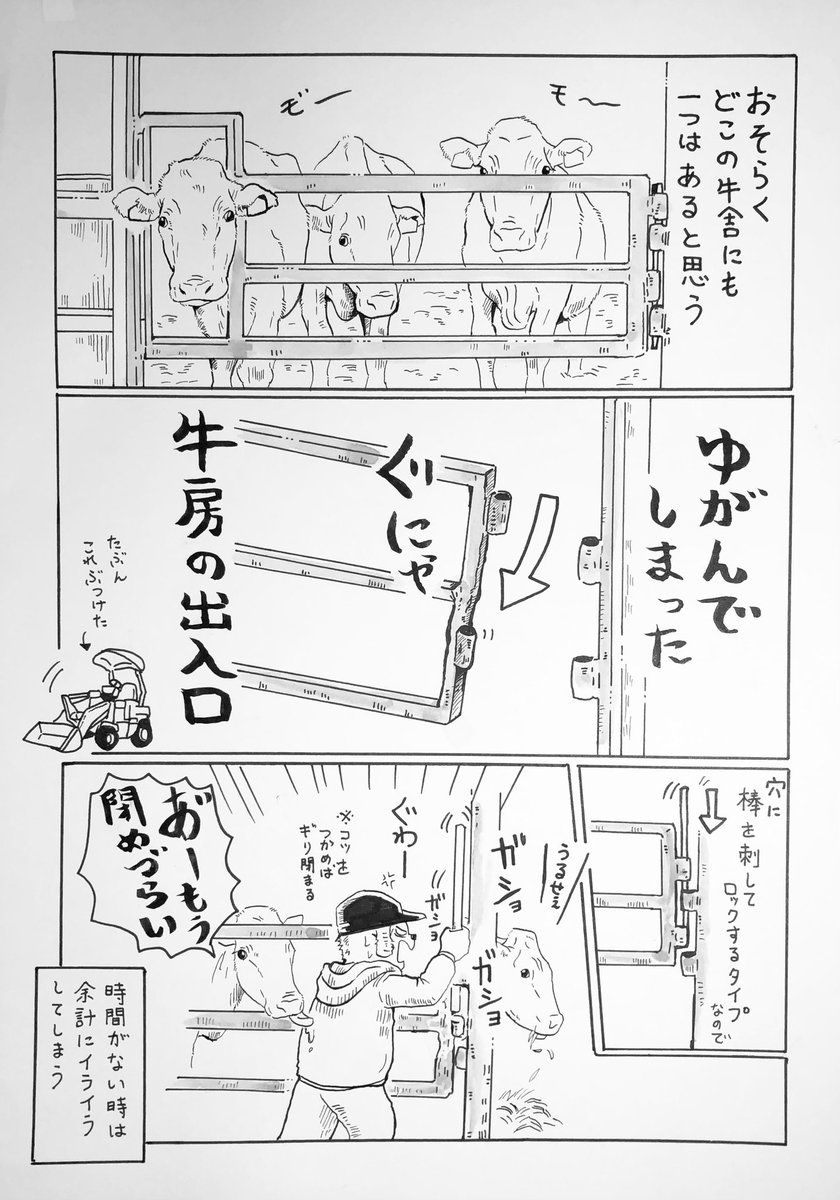 おそらく
どこの牛舎にも
一つはあると思う
モ〜
モ゛ー
ゆがんで
しまった
ぐにゃ
牛房の出入口
たぶん
これぶつけた
穴に
棒を刺して
ロックするタイプ
なので
うるせぇ
ガショ
ガショ
ガショ
ぐわー
※コツを
つかめば
ギリ閉まる
あ゛ーもう
閉めづらい
時間がない時は
余計にイライラ
してしまう